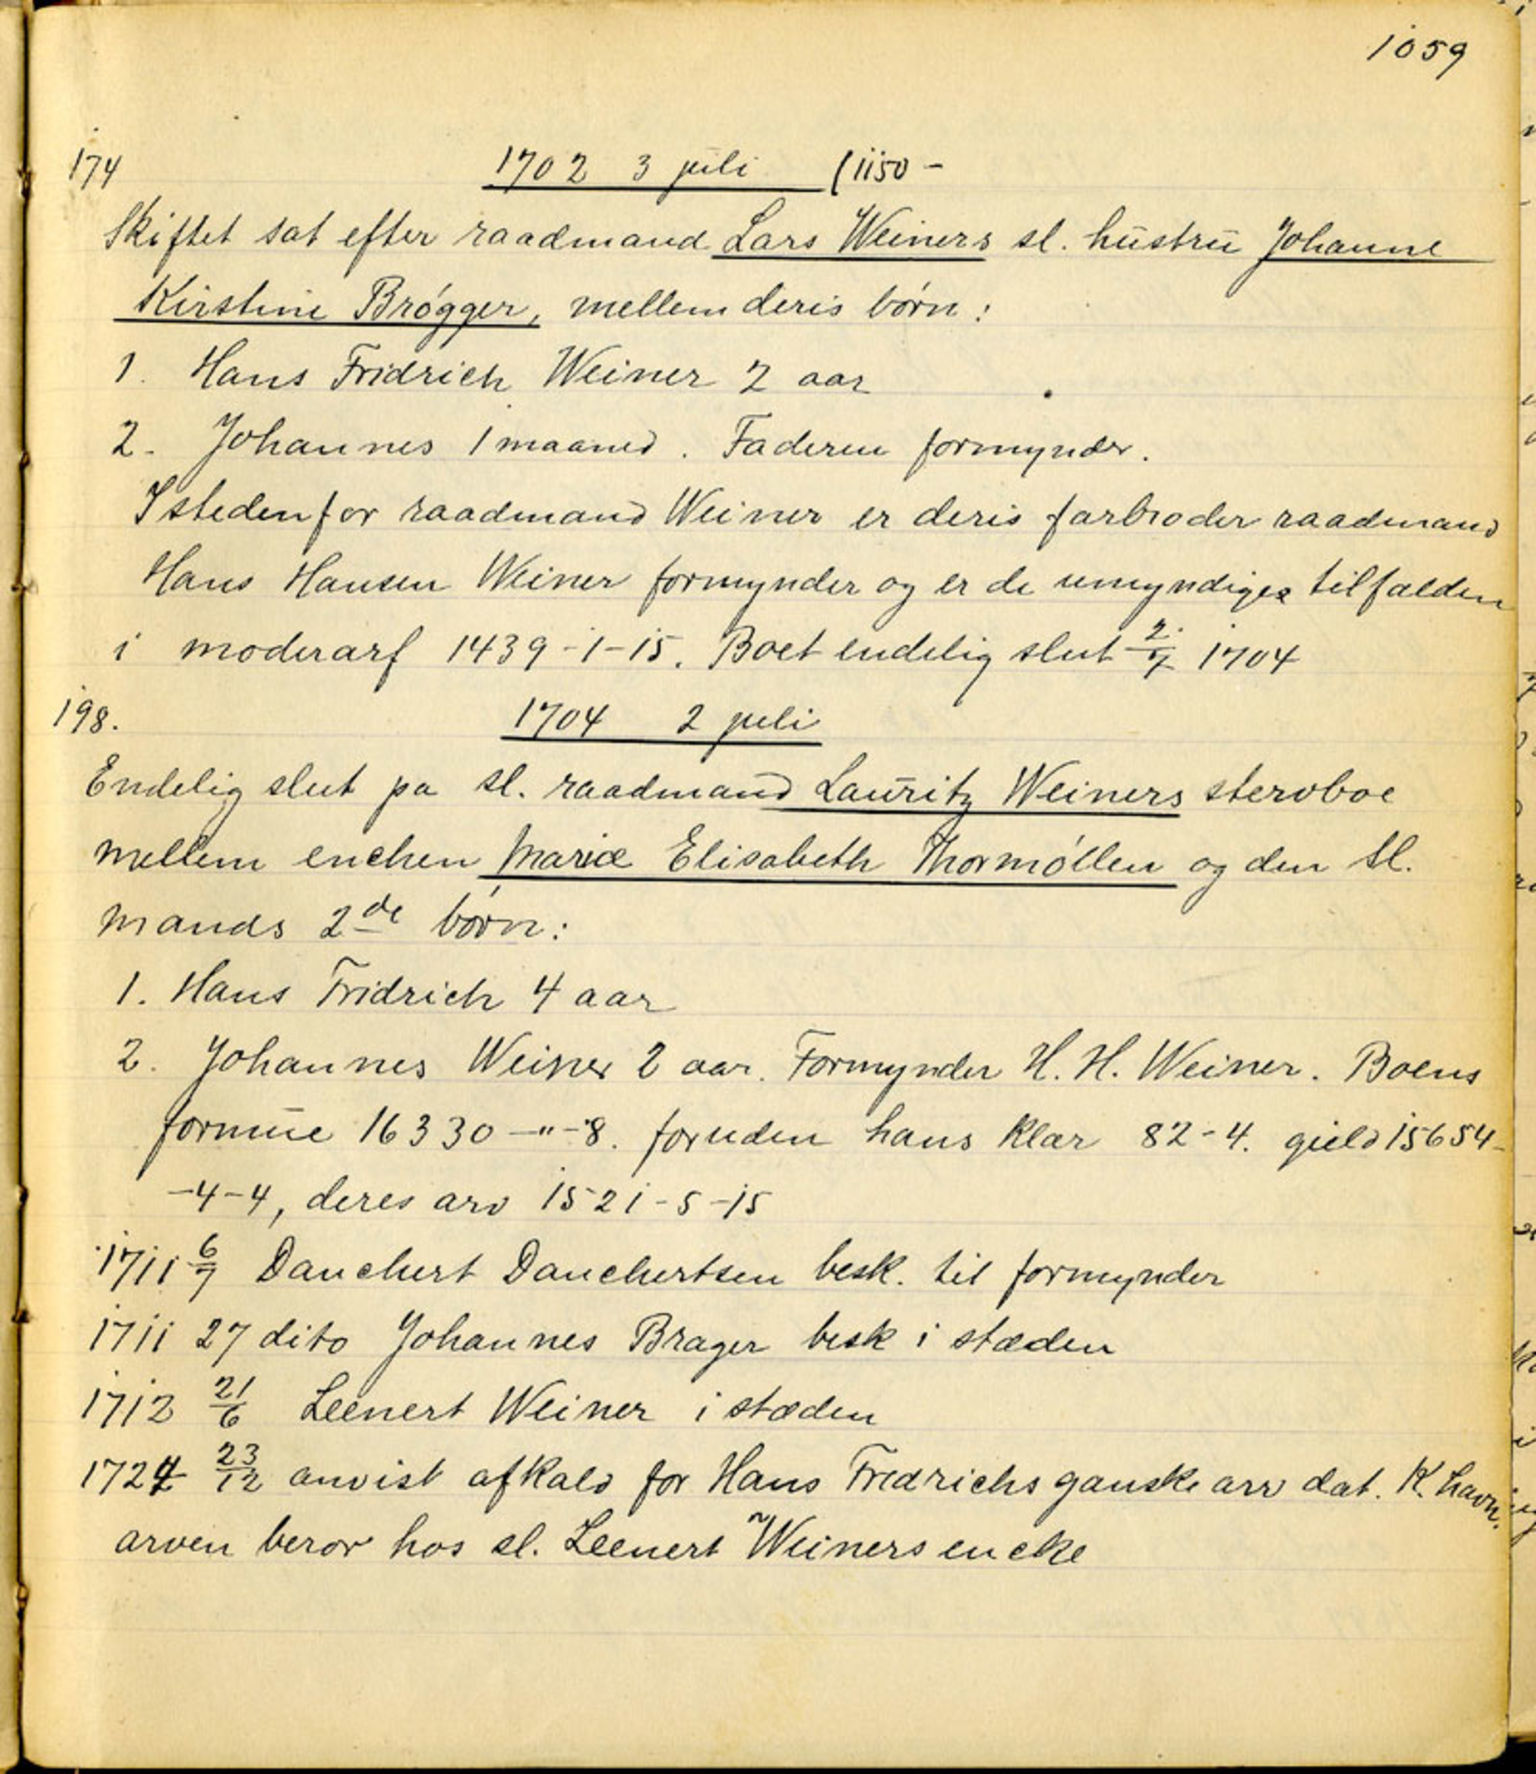 1059
174 1702 3 juli (1150 -
Skiftet sat efter raadmand Lars Weiners sl. hustru Johanne
Kirstine Brøgger, mellem deris børn:
1. Hans Fridrich Weiner 2 aar
2. Johannes 1 maaned. Faderen formynder.
Istedenfor raadmand Weiner er deris farbroder raadmand
Hans Hansen Weiner formynder og er de umyndige tilfalden
i moderarf 1439-1-15. Boet endelig slut 2/7 1704
198. 1704 2 juli
Endelig slut pa sl. raadmand Lauritz Weiners stervboe
mellem enchen Maria Elisabeth Thormøllen og den sl.
mands 2de børn:
1. Hans Fridrich 4 aar
2. Johannes Weiner 2 aar. Formynder H. H. Weiner. Boens
formue 16330-"-8. foruden hans Klær 82-4. gield 15654-
-4-4, deres arv 1521-5-15
1711 6/7 Danchert Danchertsen besk. til formynder
1711 27 dito Johannes Brager besk i stæden
1712 21/6 Leenert Weiner i stæden
1724 23/12 anvist afkald for Hans Fredrichs ganske arv dat. K.havn.
arven beror hos sl. Leenert Weiners encke